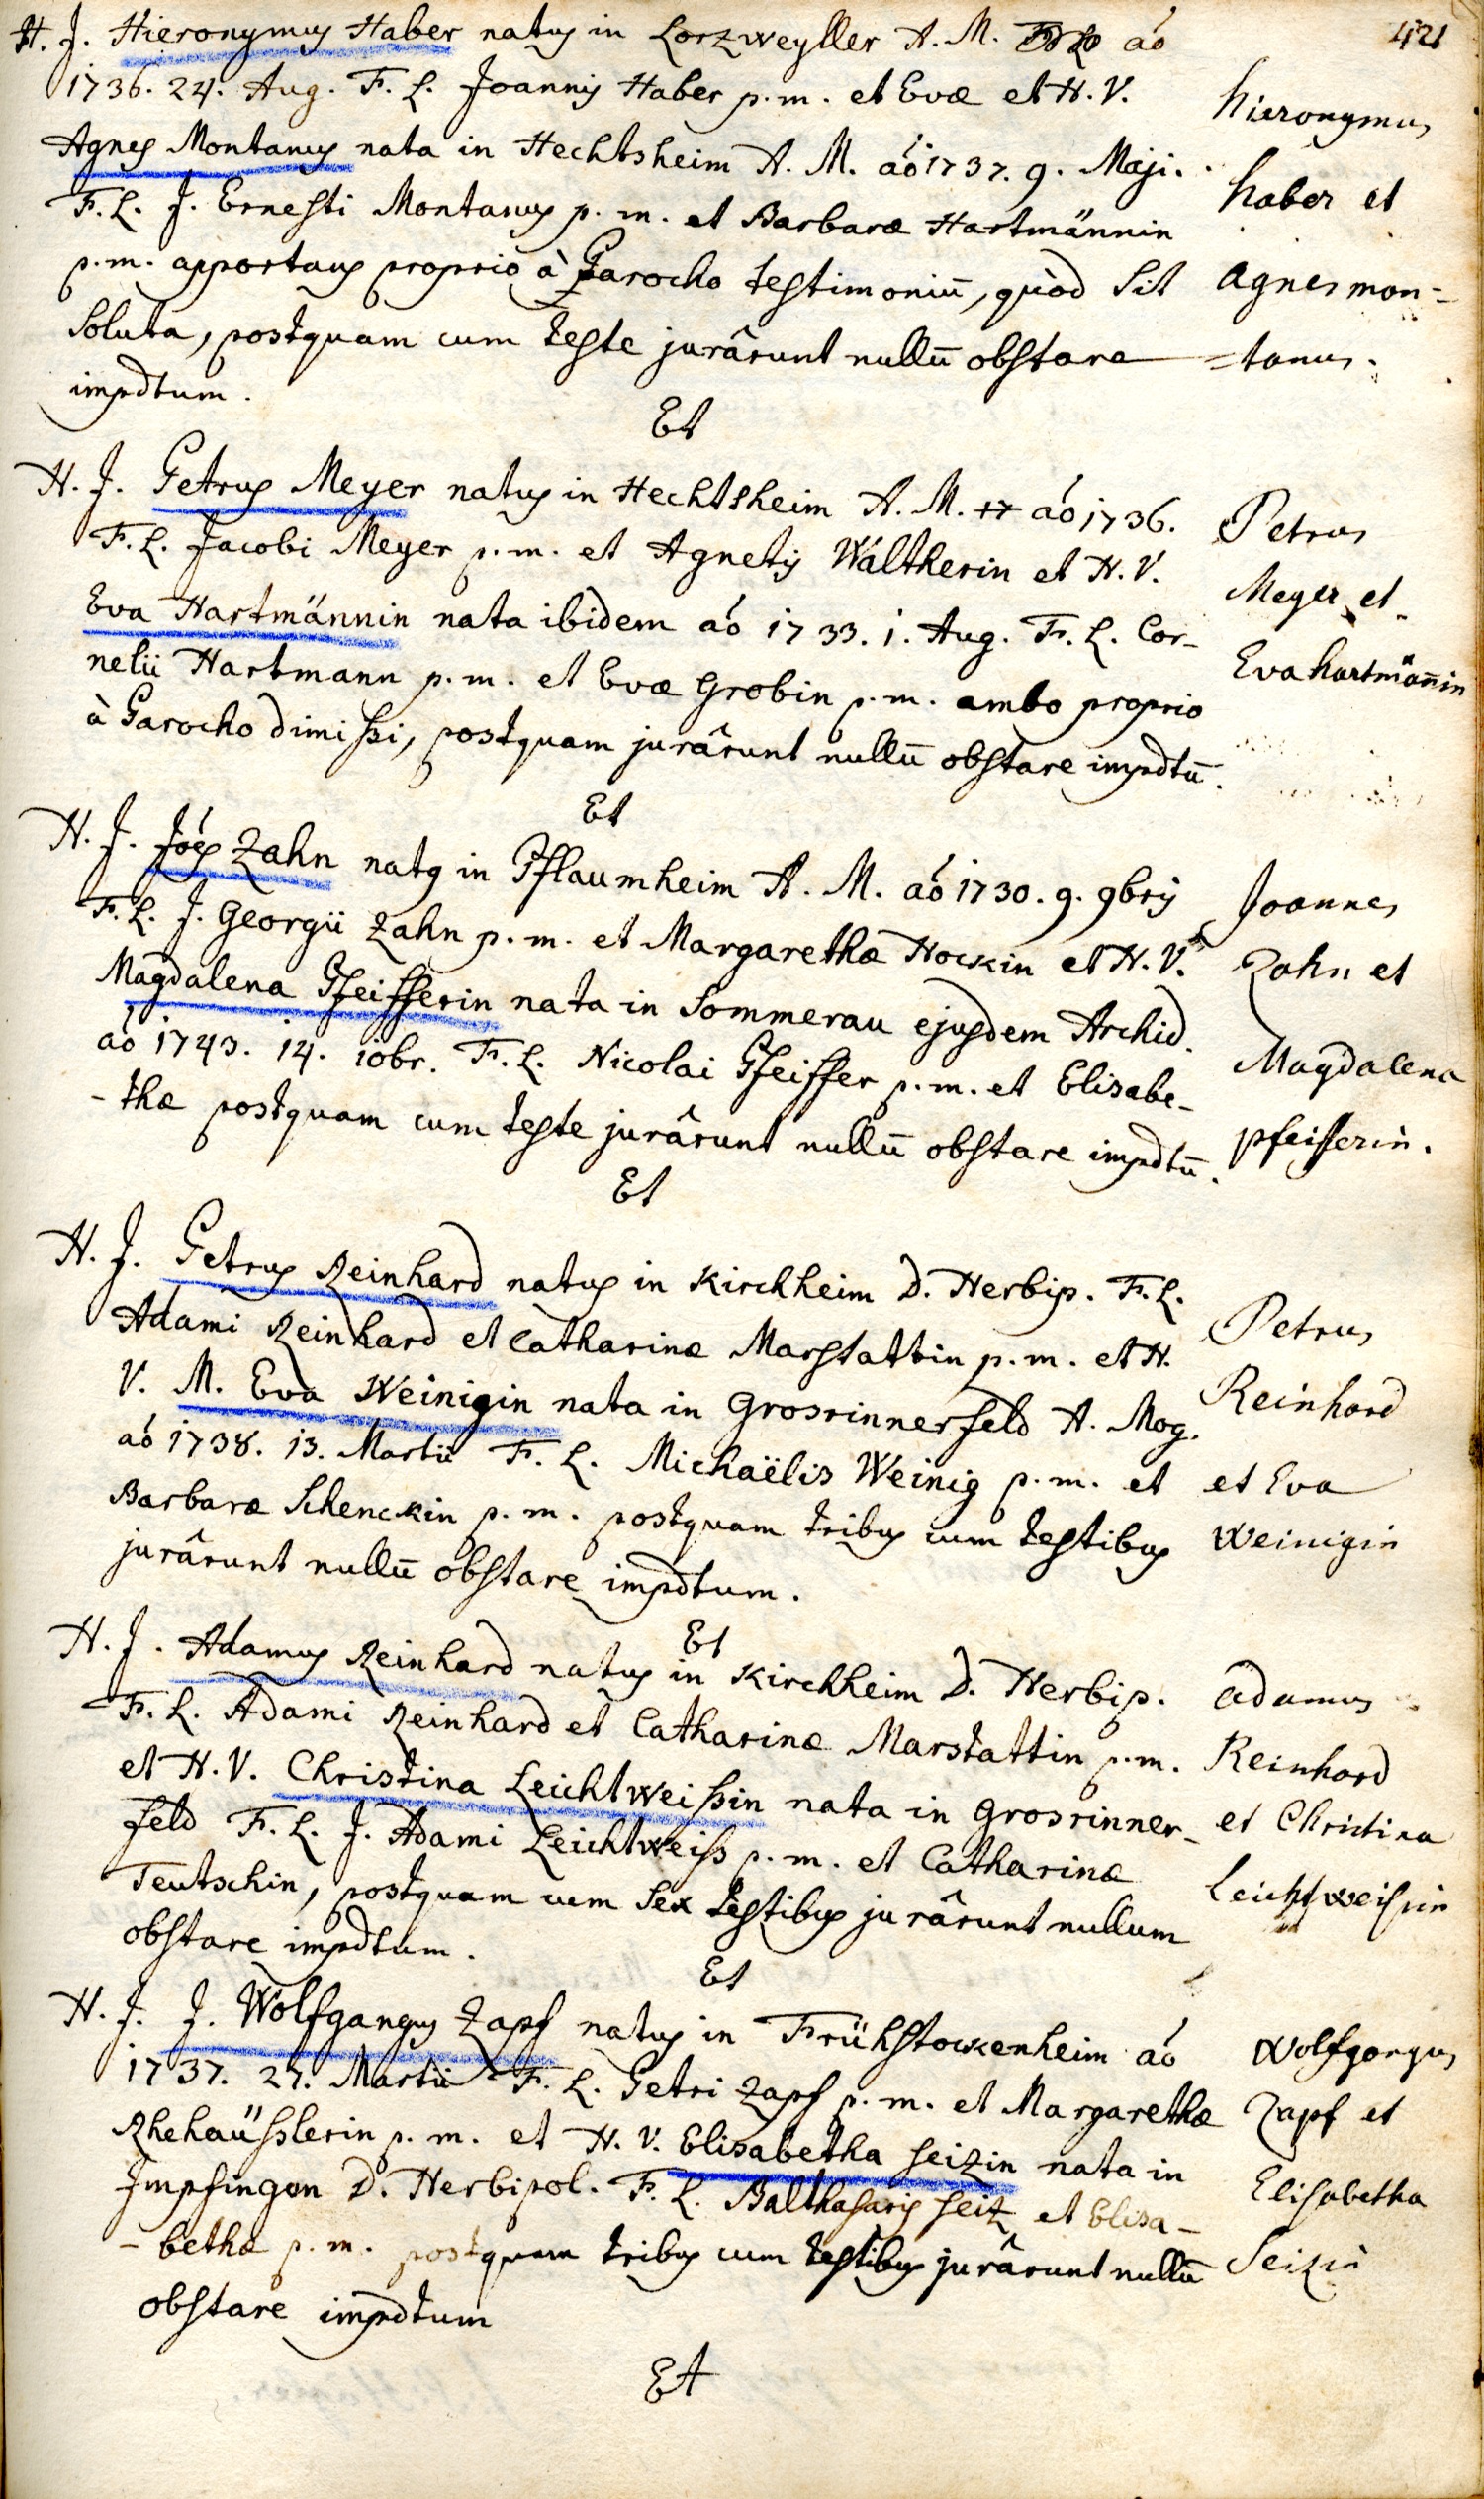 421
H. J. Hieronymus Haber natus in Lorzweyller A. M. aó
1736. 24. Aug. F. L. Joannis Haber p. m. et Evæ et H. V.
Agnes Montanus nata in Hechtsheim A. M. aó 1737. 9. Maji.
F. L. J. Ernesti Montanus p. m. et Barbaræ Hartmännin
p. m. apportans proprio à Parocho testimoniu̅, quòd sit
soluta, postquam cum teste jurârunt nullu̅ obstare
impdtum.
Hieronymus
Haber et
Agnes mon=
=tanus.
Et
H. J. Petrus Meyer natus in Hechtsheim A. M. 17 aó 1736.
F. L. Jacobi Meyer p. m. et Agnetis Waltherin et H. V.
Eva Hartmännin nata ibidem aó 1733. 1. Aug. F. L. Cor-
nelii Hartmann p. m. et Evæ Grobin p. m. ambo proprio
à Parocho dimissi, postquam jurârunt nullu̅ obstare impdtu̅.
Petrus
Meyer et
Eva hartmän̅in
Et
H. J. Jóes Zahn natq in Pflaumheim A. M. aó 1730. 9. 9bris
F. L. J. Georgii Zahn p. m. et Margarethæ Hockin et H. V.
Magdalena Pfeifferin nata in Sommerau ejusdem Archid.
aó 1743. 14. 10br. F. L. Nicolai Pfeiffer p. m. et Elisabe-
-thæ postquam cum teste jurârunt nullu̅ obstare impdtu̅.
Joannes
Zahn et
Magdalena
pfeifferin.
Et
H. J. Petrus Reinhard natus in Kirchheim D. Herbip. F. L.
Adami Reinhard et Catharinæ Marstattin p. m. et H.
V. M. Eva Weinigin nata in Grosrinnerfeld A. Mog.
aó 1738. 13. Martii F. L. Michaëlis Weinig p. m. et
Barbaræ Schenckin p. m. postquam tribus cum testibus
jurârunt nullu̅ obstare impdtum.
Petrus
Reinhard
et Eva
Weinigin
Et
H. J. Adamus Reinhard natus in Kirchheim D. Herbip.
F. L. Adami Reinhard et Catharinæ Marstattin p. m.
et H. V. Christina Leichtweissin nata in Grosrinner-
feld F. L. J. Adami Leichtweiss p. m. et Catharinæ
Teutschin, postquam cum sex testibus jurârunt nullum
obstare impdtum.
adamus
Reinhard
et Christina
Leichtweissin
Et
H. J. J. Wolfgangus Zapf natus in Frühstockenheim aó
1737. 27. Martii F. L. Petri Zapf p. m. et Margarethæ
Rhehaüsslerin p. m. et H. V. Elisabetha Seizin nata in
Impfingen D. Herbipol. F. L. Balthasaris Seitz et Elisa-
-bethæ p. m. postquam tribus cum testibus jurârunt nullu̅
obstare impdtum
Wolfgangus
Zapf et
Elisabetha
Seizin
Et